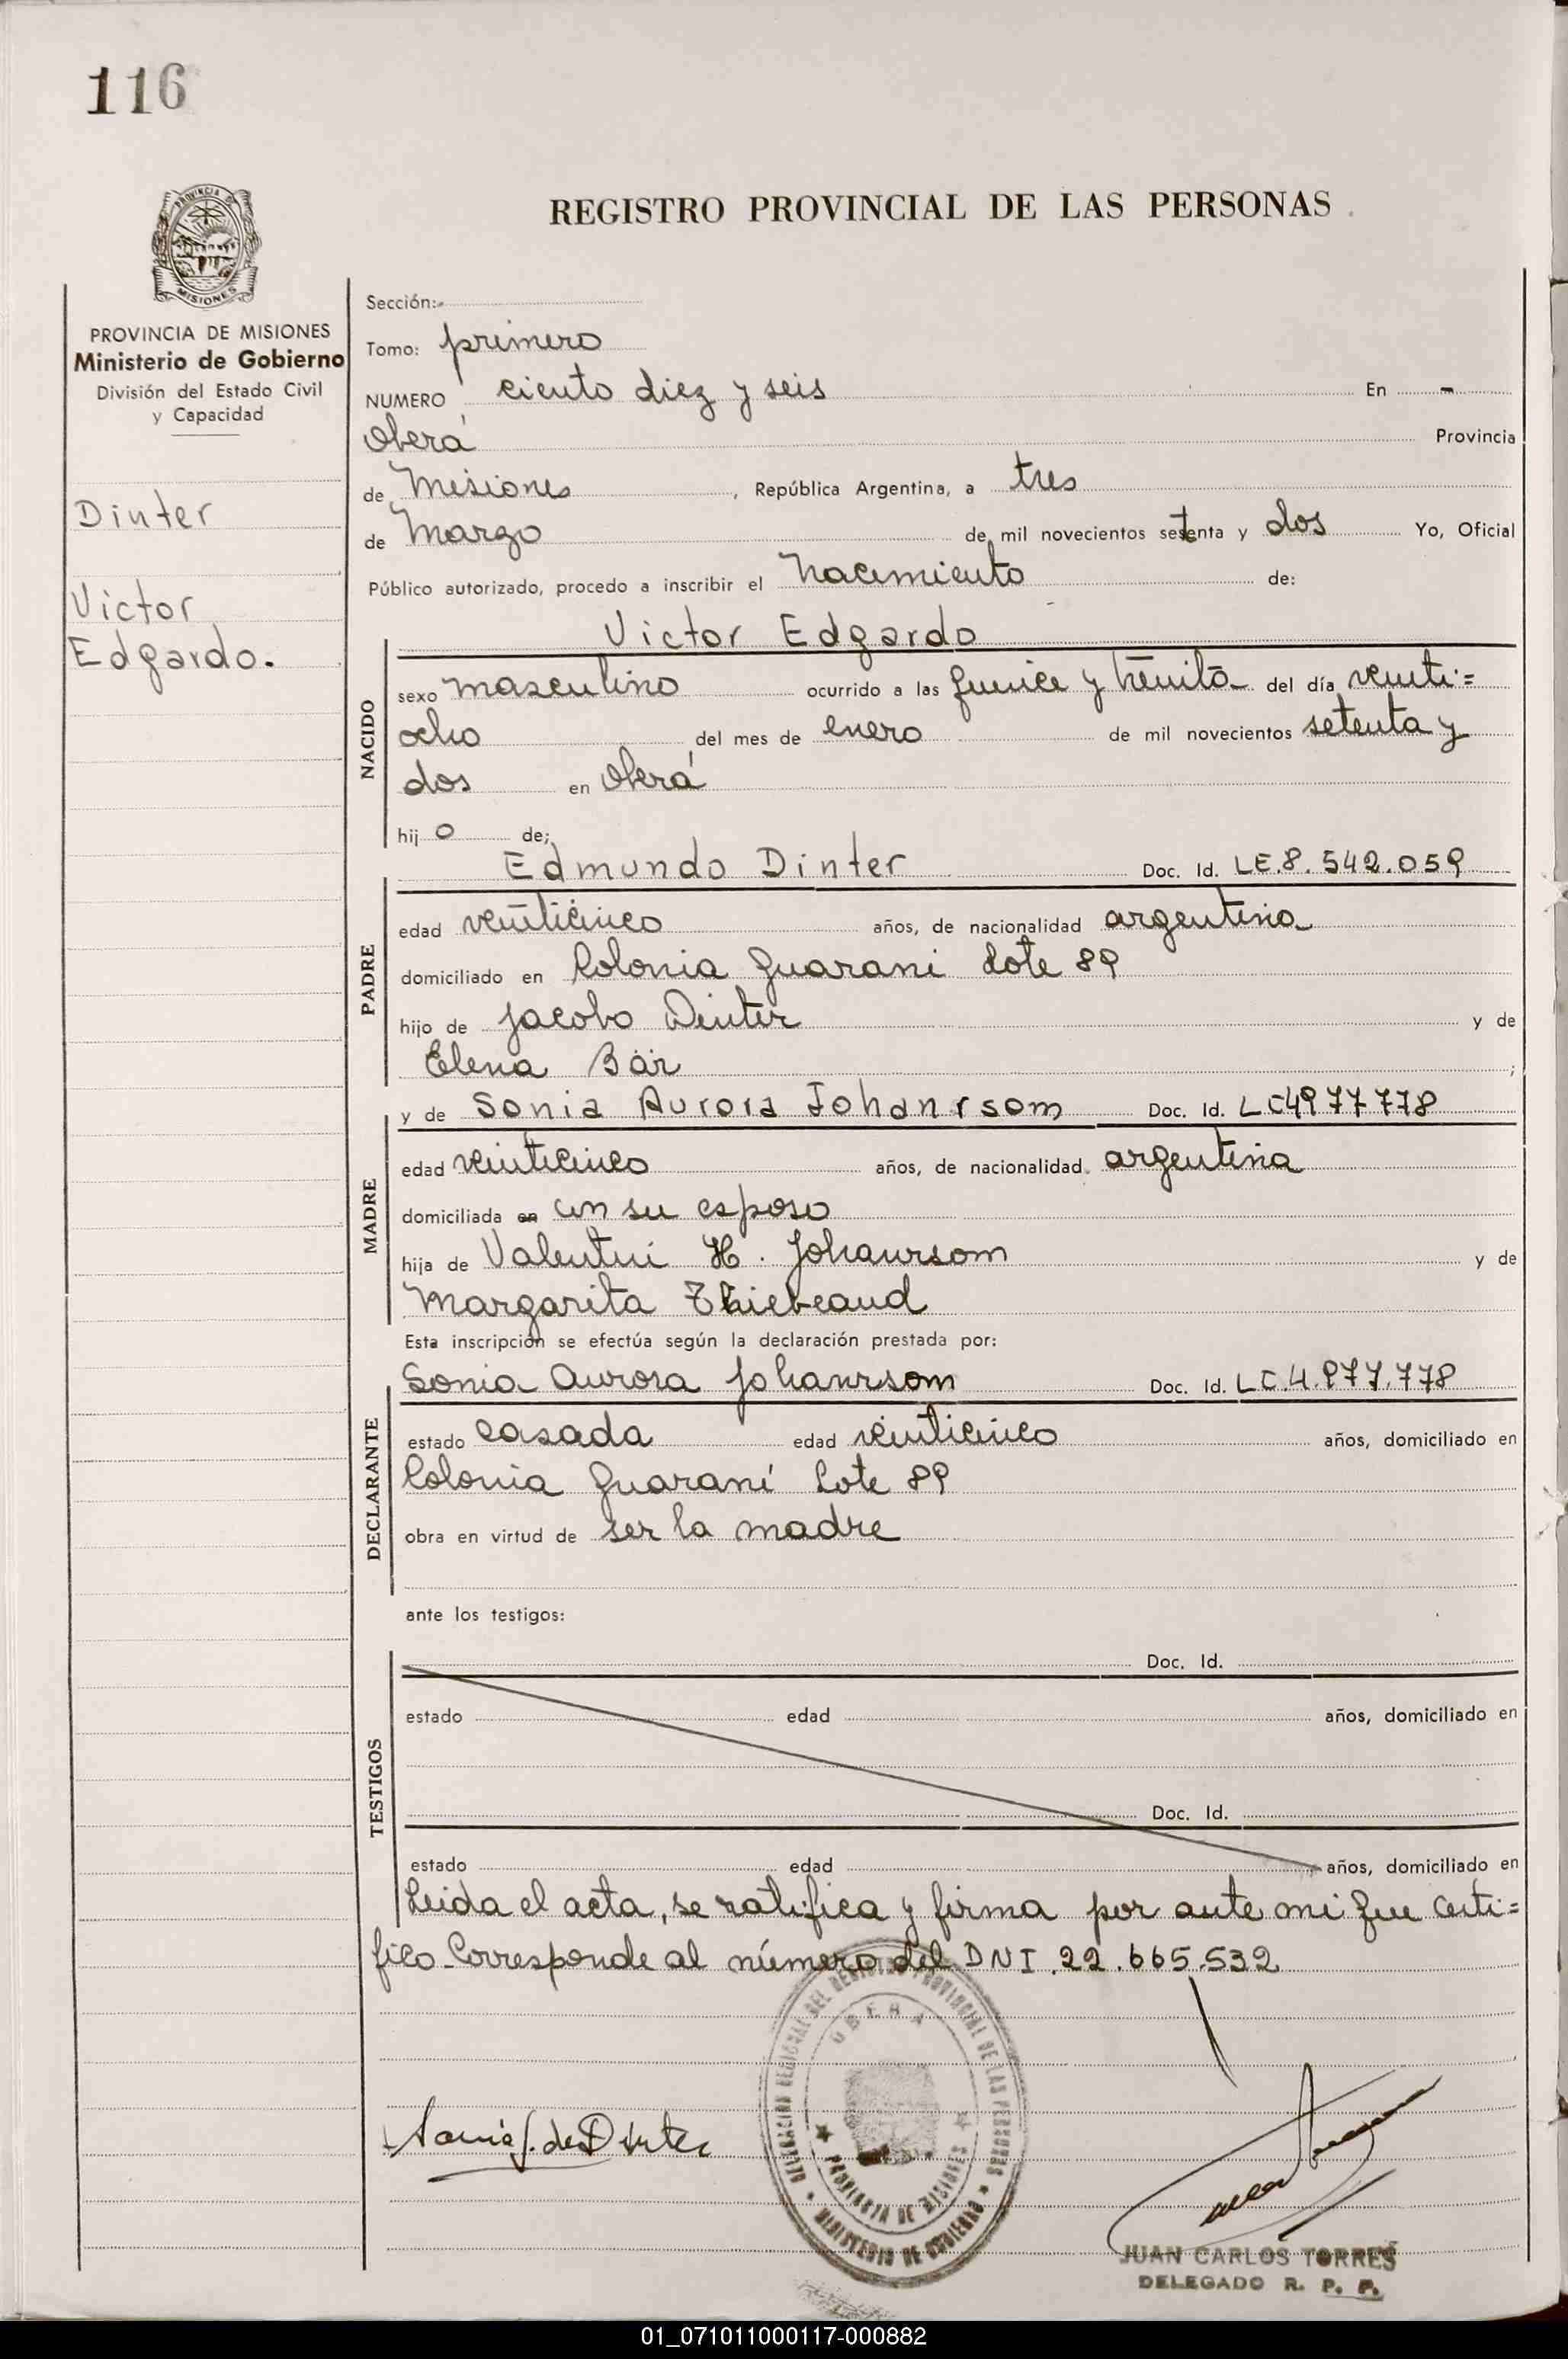 116
REGISTRO PROVINCIAL DE LAS PERSONAS
PROVINCIA
MISIONES
PROVINCIA DE MISIONES
Ministerio de Gobierno
División del Estado Civil
y Capacidad
Dinter
Victor
Edgardo.
Sección:
Tomo: primero
NUMERO ciento diez y seis En -
Oberá Provincia
de Misiones, República Argentina, a tres
de Marzo de mil novecientos setenta y dos Yo, Oficial
Público autorizado, procedo a inscribir el Nacimiento de:
Victor Edgardo
NACIDO
sexo masculino ocurrido a las quince y treinta del día veinti=
ocho del mes de enero de mil novecientos setenta y
dos en Oberá
hij o de;
Edmundo Dinter Doc. Id. LE.8.542.059
PADRE
edad veinticinco años, de nacionalidad argentina
domiciliado en Colonia Guarani Lote 89
hijo de Jacobo Dinter y de
Elena Bär ;
y de Sonia Aurora Johanrsom Doc. Id. LC4977778
MADRE
edad veinticinco años, de nacionalidad argentina
domiciliada en con su esposo
hija de Valentin H. Johanrsom y de
Margarita Thiebeaud
Esta inscripción se efectúa según la declaración prestada por:
Sonia Aurora Johanrsom Doc. Id. LC.4.977.778
DECLARANTE
estado casada edad veinticinco años, domiciliado en
Colonia Guaraní Lote 89
obra en virtud de ser la madre
ante los testigos:
Doc. Id.
TESTIGOS
estado edad años, domiciliado en
Doc. Id.
estado edad años, domiciliado en
Leida el acta, se ratifica y firma por ante mi que certi=
fico. Corresponde al número del DNI.22.665.532
DELEGACION REGIONAL DEL REGISTRO PROVINCIAL DE LAS PERSONAS
OBERA
PROVINCIA DE MISIONES
MINISTERIO DE GOBIERNO
Sonia J. de Dinter
JUAN CARLOS TORRES
DELEGADO R. P. P.
01_071011000117-000882